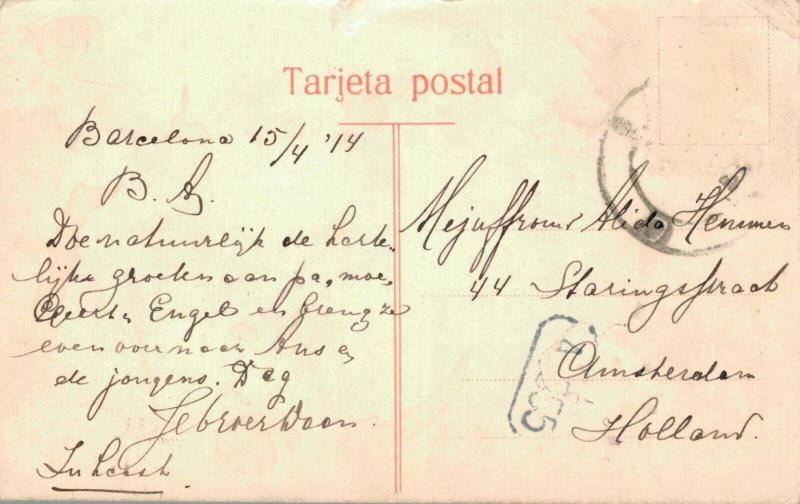 Tarjeta postal
Barcelona 15/4 '14
B. A.
Doe natuurlijk de harte-
lijke groeten aan pa, moe,
Geert, Engel en breng ze
even over naar Ans en
de jongens. Dag
Je broer Daan.
In haast
Mejuffrouw Alida Hemmen
44 Staringstraat
Amsterdam
Holland.